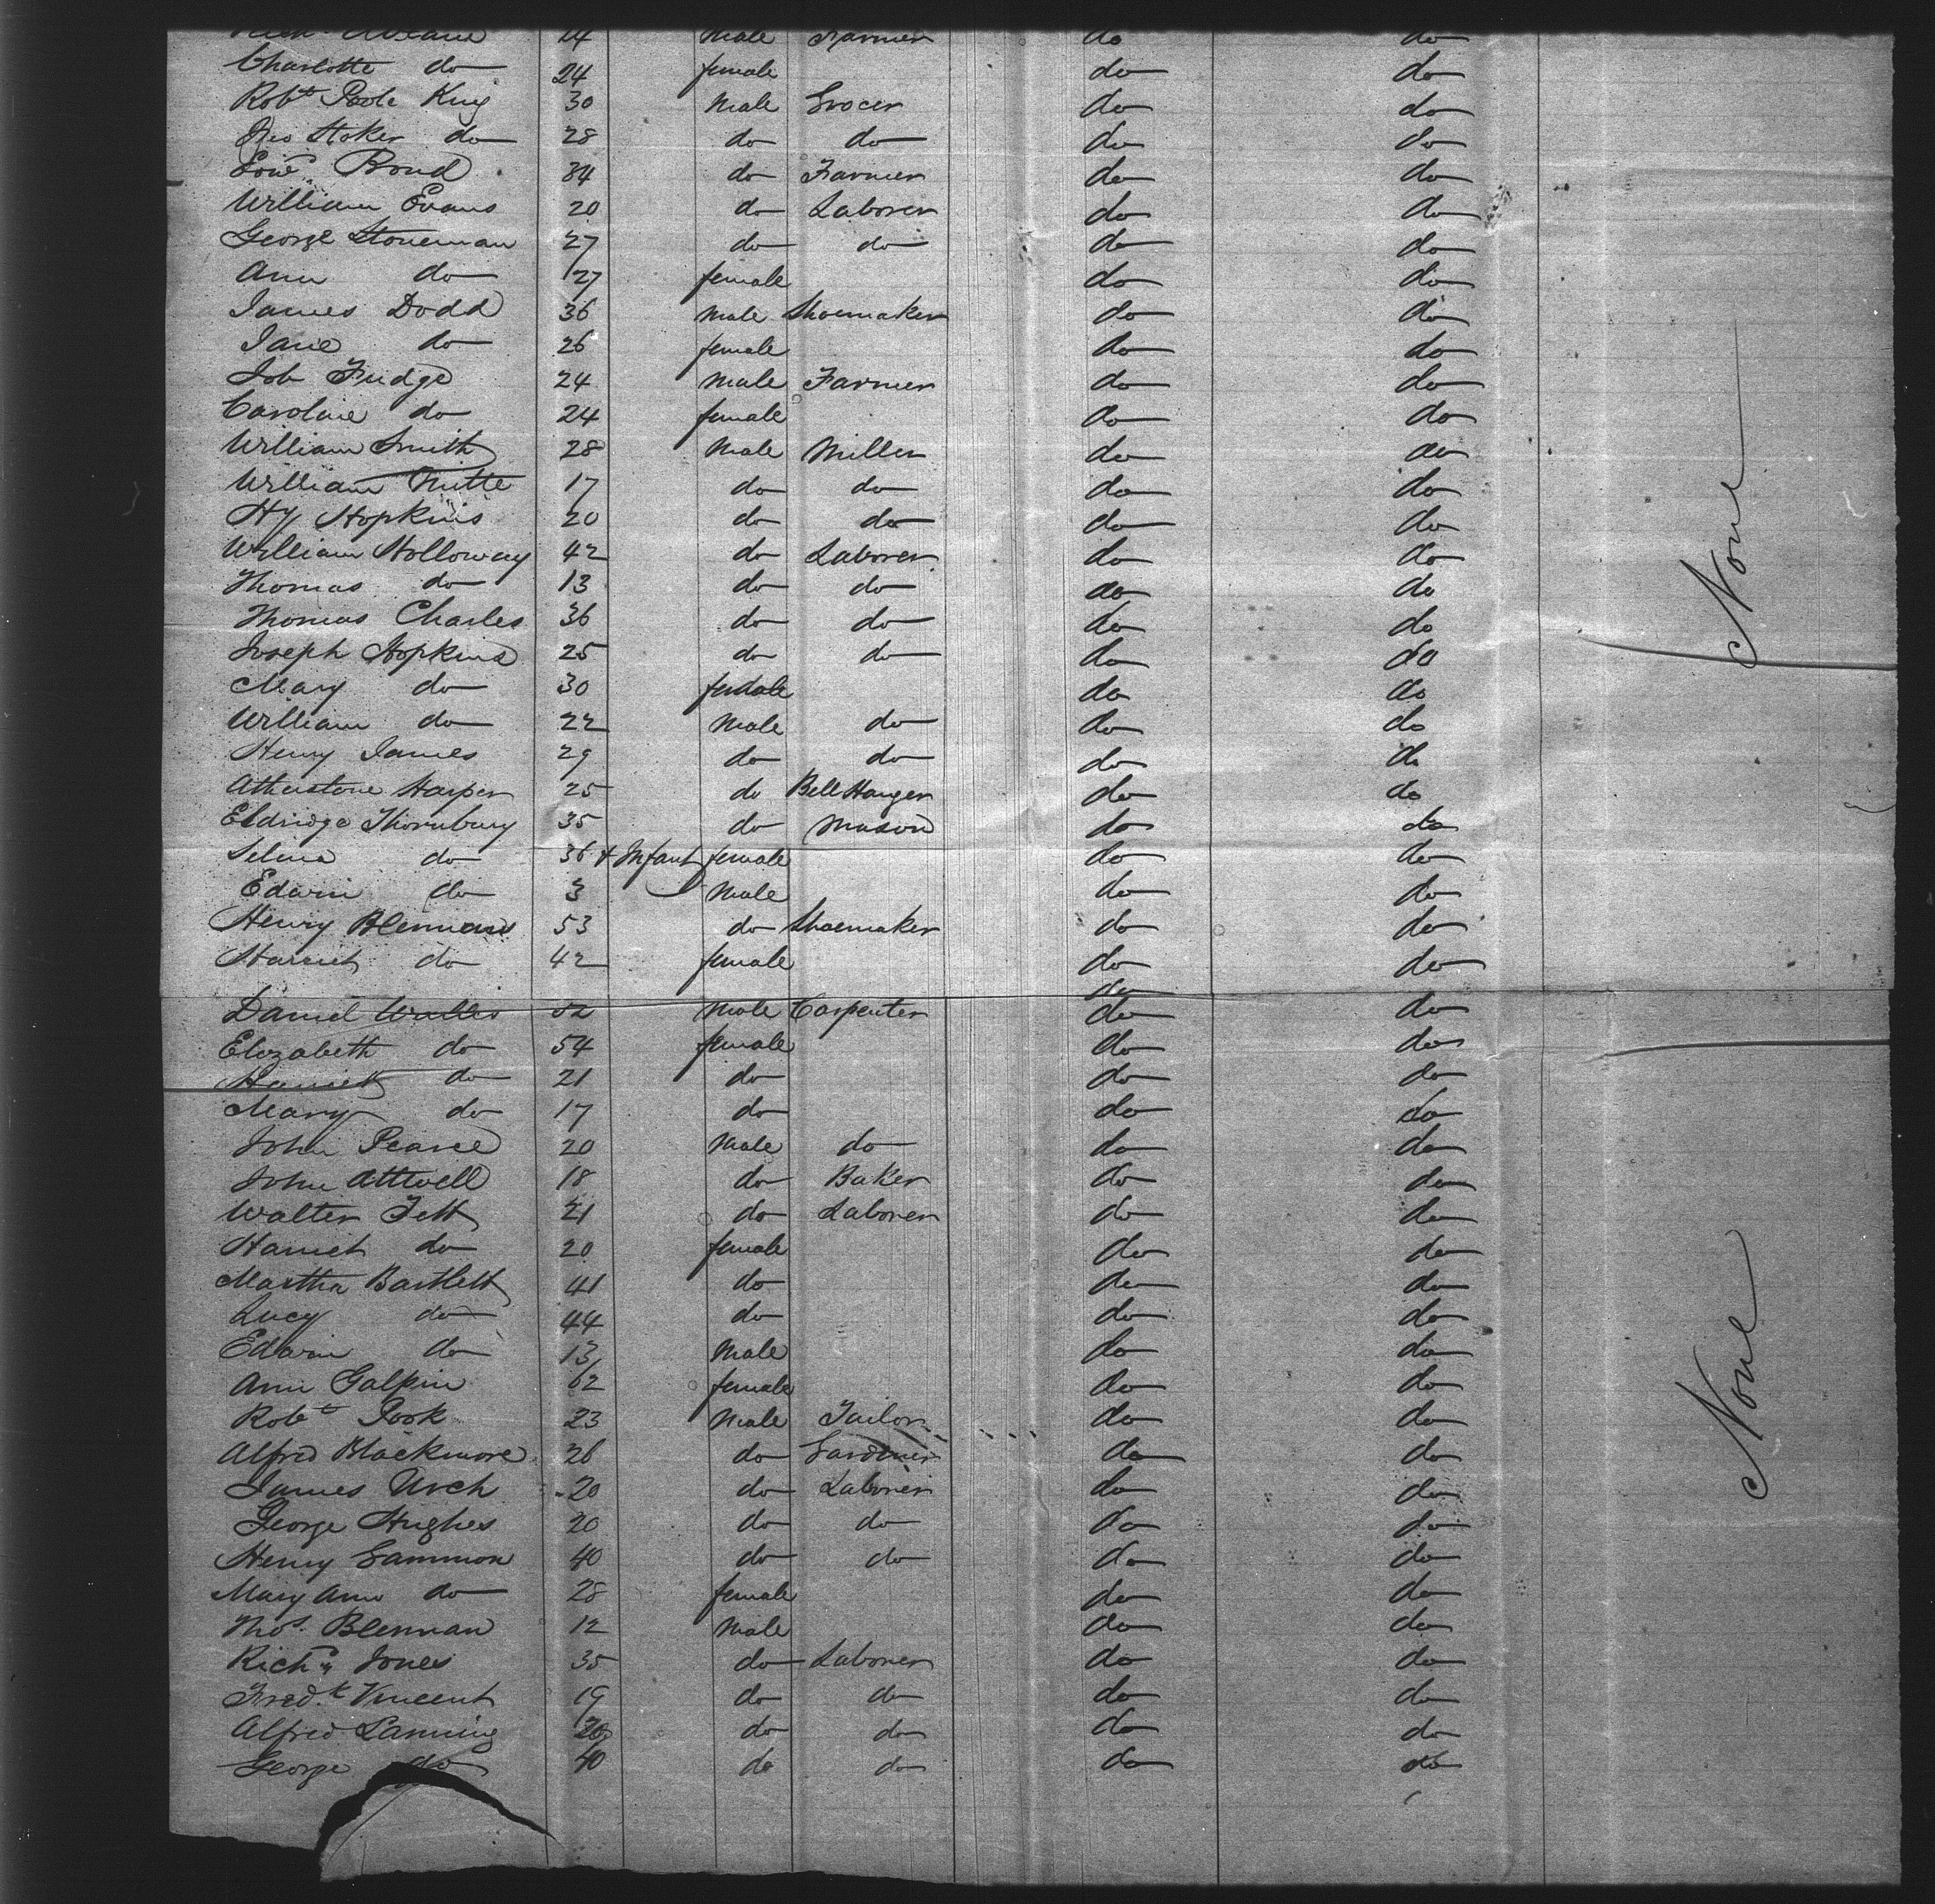 24 Male Farmer do do
Charlotte do 24 female do do
Robt Poole King 30 Male Grocer do do
Geo Stoker do 28 do do do do
Edwd Bond 34 do Farmer do do
William Evans 20 do Laborer do do
George Stoneman 27 do do do do
Ann do 27 female do do
James Dodd 36 Male Shoemaker do do
Jane do 26 female do do
Job Fudge 24 Male Farmer do do
Caroline do 24 female do do
William Smith 28 Male Miller do do
William 17 do do do do
Hy Hopkins 20 do do do do
William Holloway 42 do Laborer do do
Thomas do 13 do do do do
Thomas Charles 36 do do do do
Joseph Hopkins 25 do do do do
Mary do 30 female do do
William do 22 Male do do do
Henry James 29 do do do do
Atherstone Harper 25 do Bell Hanger do do
Eldridge Thornbury 35 do Mason do do
Selina do 36 + Infant female do do
Edwin do 3 Male do do
Henry Blenman 53 do Shoemaker do do
Harriet do 42 female do do
do
Daniel 52 Male Carpenter do do
Elizabeth do 54 female do do
Harriet do 21 do do do
Mary do 17 do do do
John Pearce 20 Male do do do
John Attwell 18 do Baker do do
Walter Fett 21 do Laborer do do
Harriet do 20 female do do
Martha Bartlett 41 do do do
Lucy do 44 do do do
Edwin do 13 Male do do
Ann Galpin 62 female do do
Robt Pook 23 Male Tailor do do
Alfred Blackmore 26 do Gardener do do
James Urch 20 do Laborer do do
George Hughes 20 do do do do
Henry Gammon 40 do do do do
Mary Ann do 28 female do do
Thos. Blenman 12 Male do do
Richd Jones 35 do Laborer do do
Fredk Vincent 19 do do do do
Alfred Lanning 20 do do do do
George do 40 do do do do
None
None